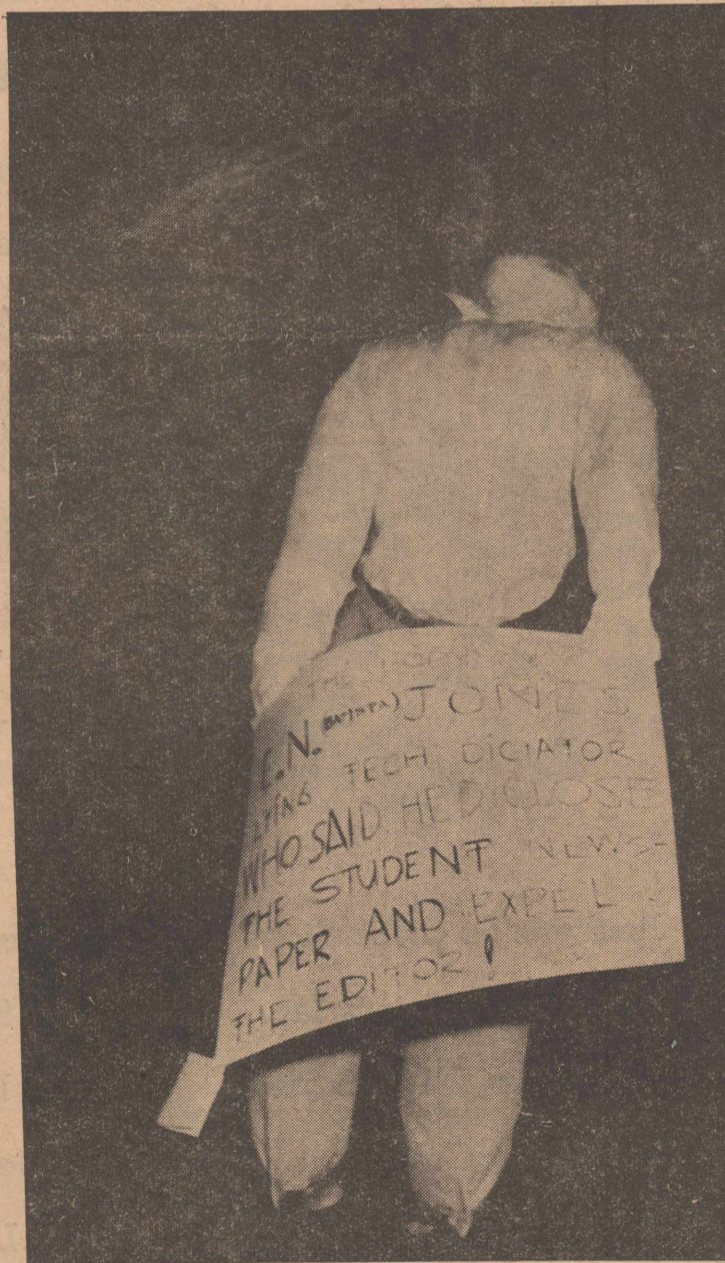 THE
E.N. (BATISTA) JONES
LYING TECH DICTATOR
WHO SAID HE'D CLOSE
THE STUDENT NEWS-
PAPER AND EXPEL
THE EDITOR!